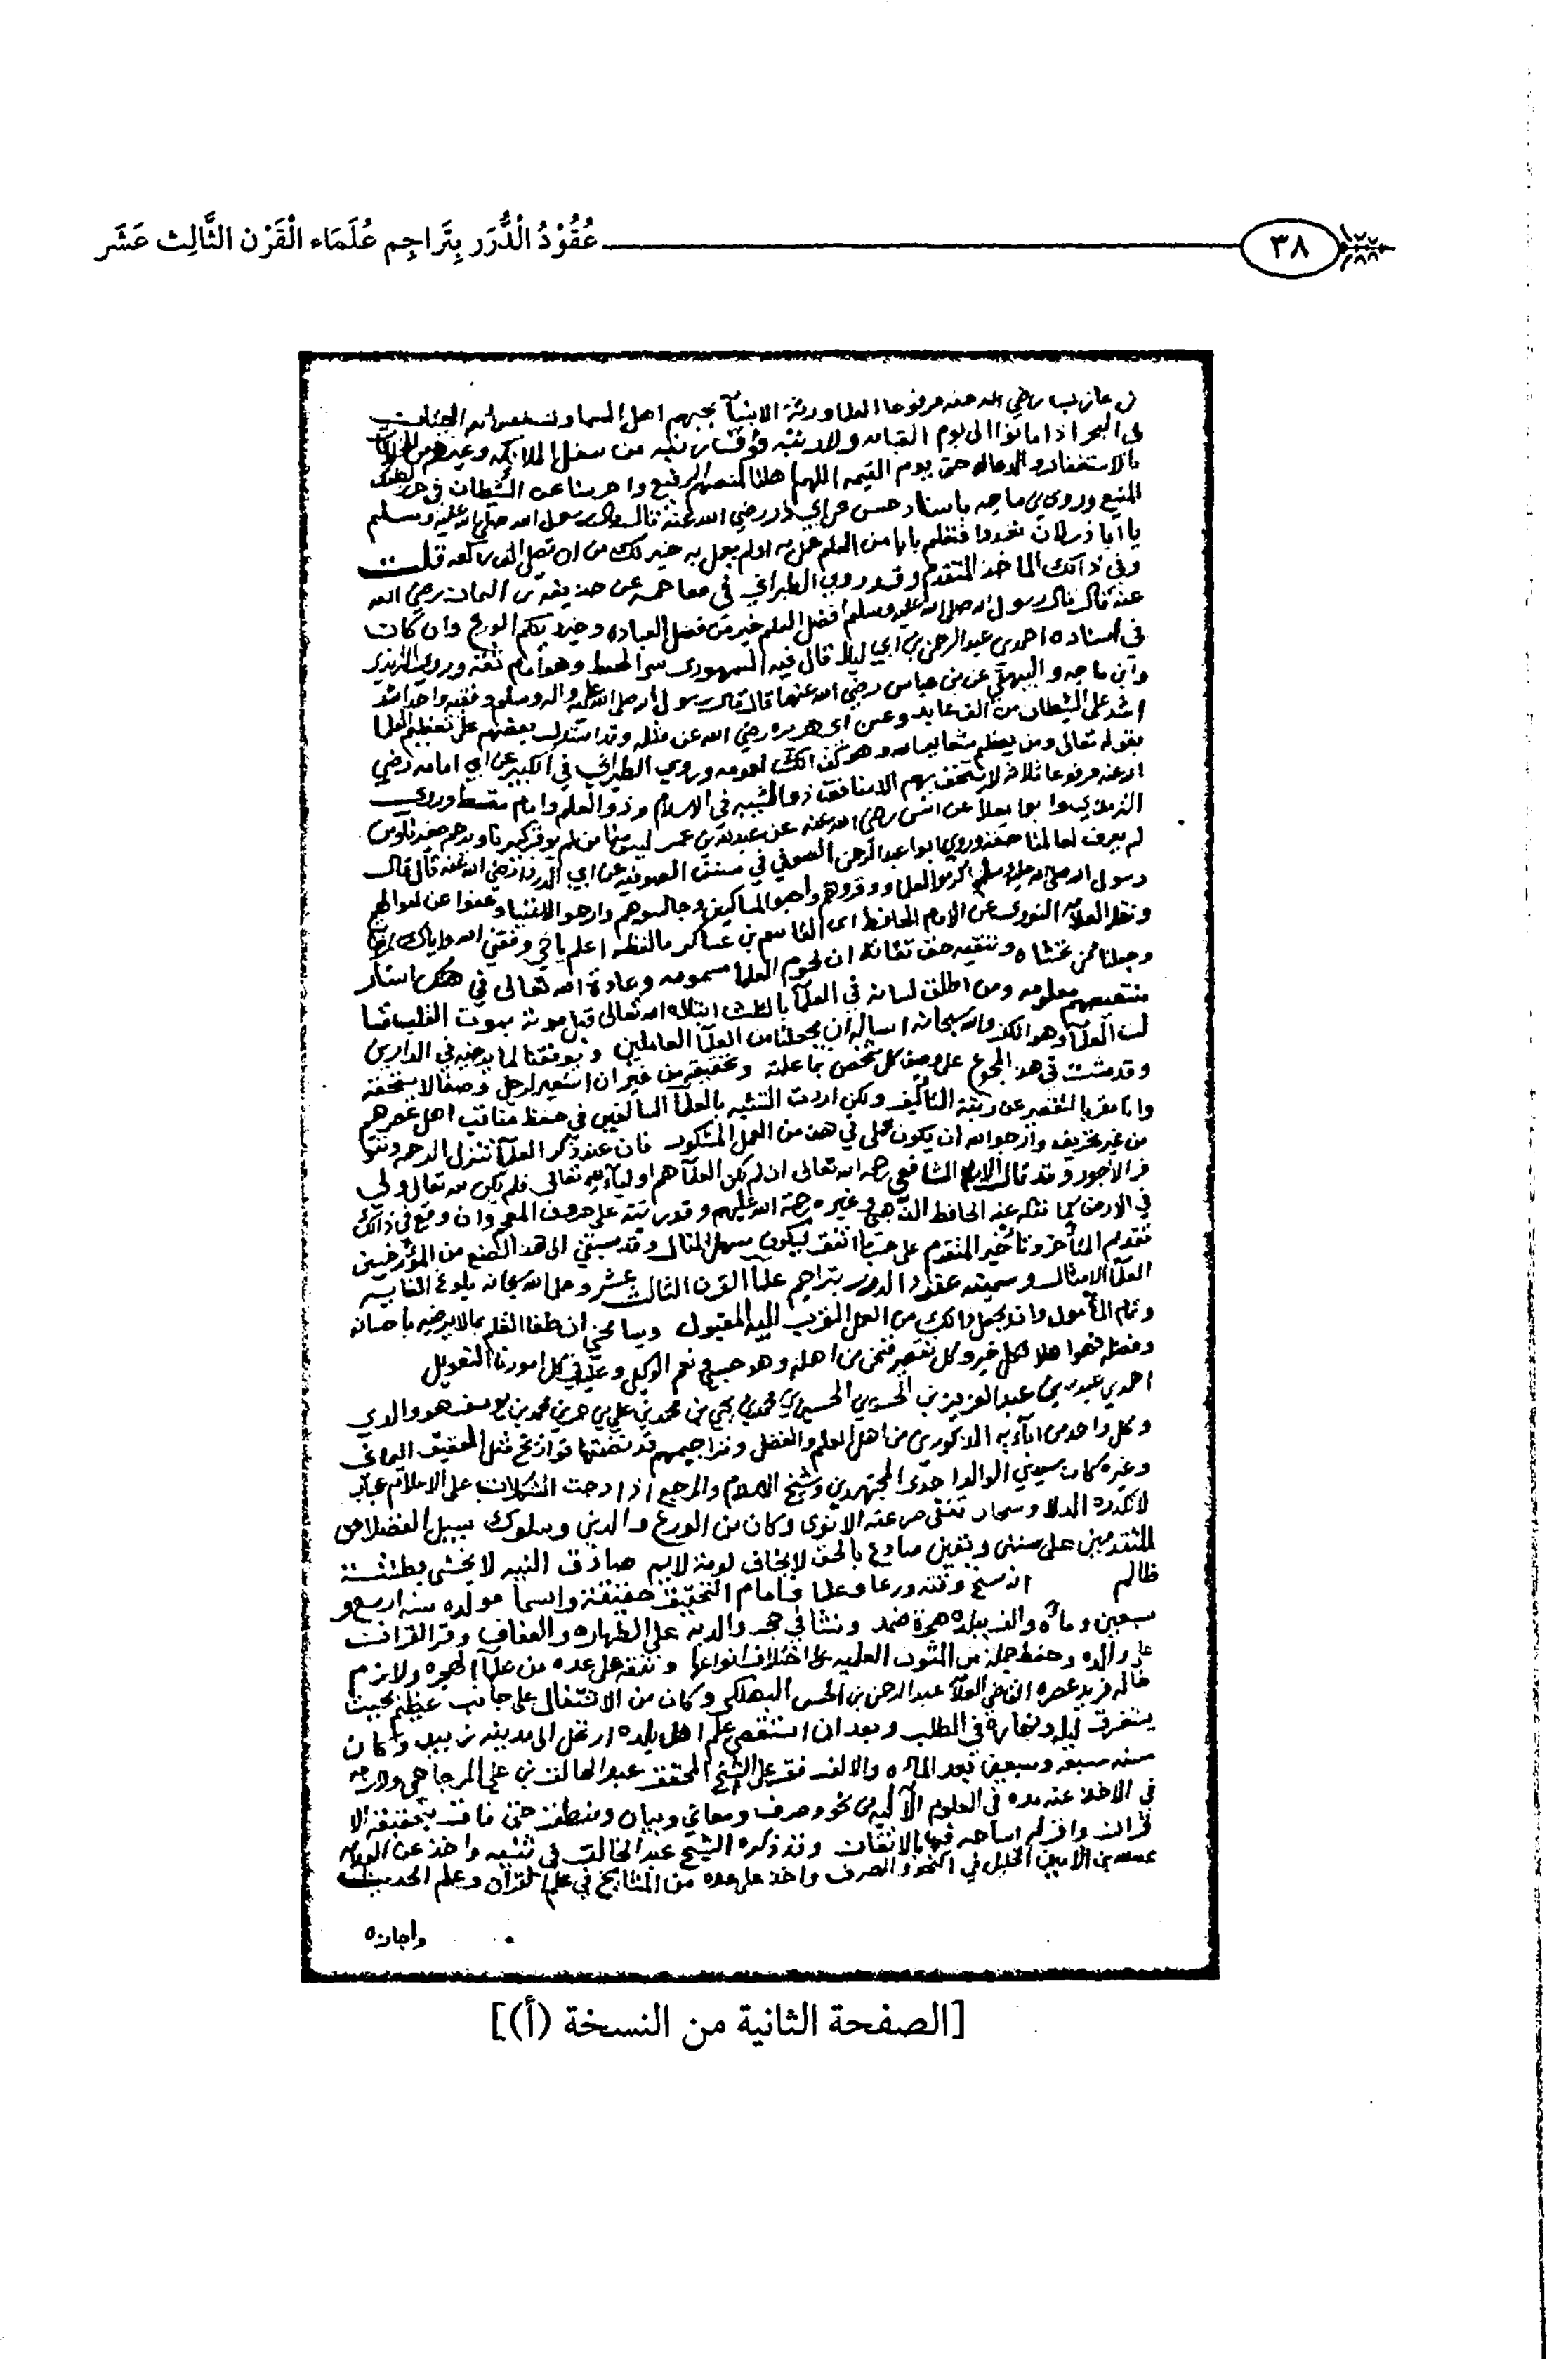 عُقُوْدُ الْدُّرَر بِتَرَاجِم عُلَمَاء الْقَرْن الثَّالِث عَشَر
٣٨
بن عازب رضي الله عنه مرفوعا العلما ورثة الانبيآ يحبهم اهل السما
البحر اذا ماتوا الى يوم القيامه
بالاستغفار والدعا له حتى يوم القيمه اللهم
المنيع وروى بن ماجه باسناد حسن عن ابي ذر رضي الله عنه قال قال رسول الله صلى الله عليه وسلم
يا ابا ذر لان تغدوا فتعلم بابا من العلم عمل به او لم يعمل به خير لك من ان تصلي الف ركعه قلت
وفي ذالك الماخذ المتقدم وقد روى الطبراني في معاجمه عن حذيفة بن اليمان رضي الله
عنه قال قال رسول الله صلى الله عليه وسلم فضل العلم خير من فضل العباده وخير دينكم الورع وان كان
في اسناده احمد بن عبد الرحمن بن ابي ليلا قال فيه السمهودي سي الحفظ وهو امام ثقه وروى الترمذي
وابن ماجه والبيهقي عن بن عباس رضي الله عنهما قال قال رسول الله صلى الله عليه واله وسلم وفقيه واحد اشد
اشد على الشيطان من الف عابد وعن ابي هريره رضي الله عنه مثله وقد استدل بعضهم على تعظيم العلما
بقوله تعالى ومن يعظم شعاير الله وهو كذالك لعمومه وروى الطبراني في الكبير عن ابي امامه رضي
الله عنه مرفوعا ثلاثه لا يستخف بهم الا منافق ذو الشيبه في الاسلام وذو العلم وامام مقسط وروى
الترمذي وابو يعلا عن انس رضي الله عنه عن عبد الله بن عمر ليس منا من لم يوقر كبيرنا ويرحم صغيرنا ومن
لم يعرف لعالمنا حقه وروى ابو عبد الرحمن الصوفي في سنن الصوفيه عن ابي الدردا رضي الله عنه قال قال
رسول الله صلى الله عليه وسلم اكرموا العلما ووقروهم واحبوا المساكين وجالسوهم وارحموا الاغنيا وعفوا عن اموالهم
ونقل العلامه النووي عن الامام الحافظ ابي القاسم بن عساكر ما لفظه اعلم يا اخي وفقني الله واياك
وجعلنا ممن يخشاه ويتقيه حق تقاته ان لحوم العلما مسمومه وعادة الله تعالى في هتك استار
منتقصيهم معلومه ومن اطلق لسانه في العلمآ بالثلب ابتلاه الله تعالى قبل موته بموت القلب
والله سبحانه اساله ان يجعلنا من العلمآ العاملين ويوفقنا لما يرضيه في الدارين
وقد مشيت في هذا المجموع على وصف كل شخص بما علمته وتحققته من غير ان استعير لرجل وصفا لا يستحقه
وانا مقر بالتقصير عن رتبة التاليف ولكن اردت التشبه بالعلمآ السالفين في حفظ مناقب اهل عصرهم
من غير تحريف وارجوا الله ان يكون عملي في هذا من العمل المشكور فان عند ذكر العلمآ تتنزل الرحمه
الاجور وقد قال الامام الشافعي رحمه الله تعالى ان لم يكن العلمآ هم اوليآء لله تعالى فلم يكن لله تعالى ولي
في الارض كما نقله عنه الحافظ الذهبي وغيره رحمة الله عليهم وقد رتبته على حروف المعجم وان وقع في ذالك
تقديم المتأخر وتأخير المتقدم على حسب ما اتفق ليكون سهل المنال وقد سبقني الى هذا الصنع من المؤرخين
العلمآ الامثال وسميته عقود الدرر بتراجم علمآ القرن الثالث عشر وعلى الله سبحانه بلوغ الغايه
وتمام المأمول وان يجعل ذالك من العمل المقرب اليه المقبول ويسامحني ان طغا القلم بما لا يرضيه باحسانه
وفضله فهو اهلا لكل خير وكل تقصير فنحن من اهله وهو حسبي ونعم الوكيل وعليه في كل امورنا التعويل
احمد بن عبد الله بن عبد العزيز بن الحسن بن الحسين بن محمد بن يحيى بن محمد بن علي بن عمر بن محمد بن يوسف هو والدي
وكل واحد من ابآءيه المذكورين من اهل العلم والفضل وتراجمهم قد تضمنتها تواريخ مثل العقيق اليماني
وغيره كان سيدي الوالد احد المجتهدين وشيخ الاسلام والمرجع اذا دجت المشكلات على الاعلام عباب
لا تكدره الدلا وسحاب
المتقدمين على سنن ويقين صادع بالحق لا يخاف لومة لايم صادق النيه لا يخشى بطشة
ظالم
سبعين وماه والف ببلده هجرة ضمد ونشا في حجر والديه على الطهاره والعفاف وقرا القران
على والده وحفظ جملة من المتون العلميه على اختلاف انواعها وتفقه على عده من علمآ الهجره ولازم
خاله فريد عصره القاضي العلآمة عبد الرحمن بن الحسن البهكلي وكان من الاشتغال على جانب عظيم بحيث
يستغرق ليله ونهاره في الطلب وبعد ان استقصى علم اهل بلده ارتحل الى مدينة زبيد وكان
سنه سبعه وسبعين بعد المائه والالف فقرا على الشيخ المحقق عبد الخالق بن علي المزجاجي ولازمه
في الاخذ عنه مده في العلوم الآليه من نحو وصرف ومعاني وبيان ومنطق حتى فاق بتحقيقه الا
قران واقر له اساتيذه فيها بالاتقان وقد ذكره الشيخ عبد الخالق في ثبته واخذ عن العلامه
عبد الله بن الامين الخليل في النحو والصرف واخذ على عده من المشايخ في علم القران وعلم الحديث
واجازه
[الصفحة الثانية من النسخة (أ)]